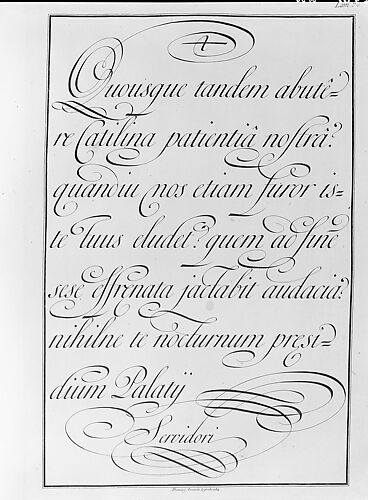 Quousque tandem abutê=
re Catilina patientiâ nostrâ?
quandiu nos etiam furor is=
te tuus eludet? quem ad finē
sese effrenata jactabit audacia?
nihilne te nocturnum presi=
dium Palatij
Servidori